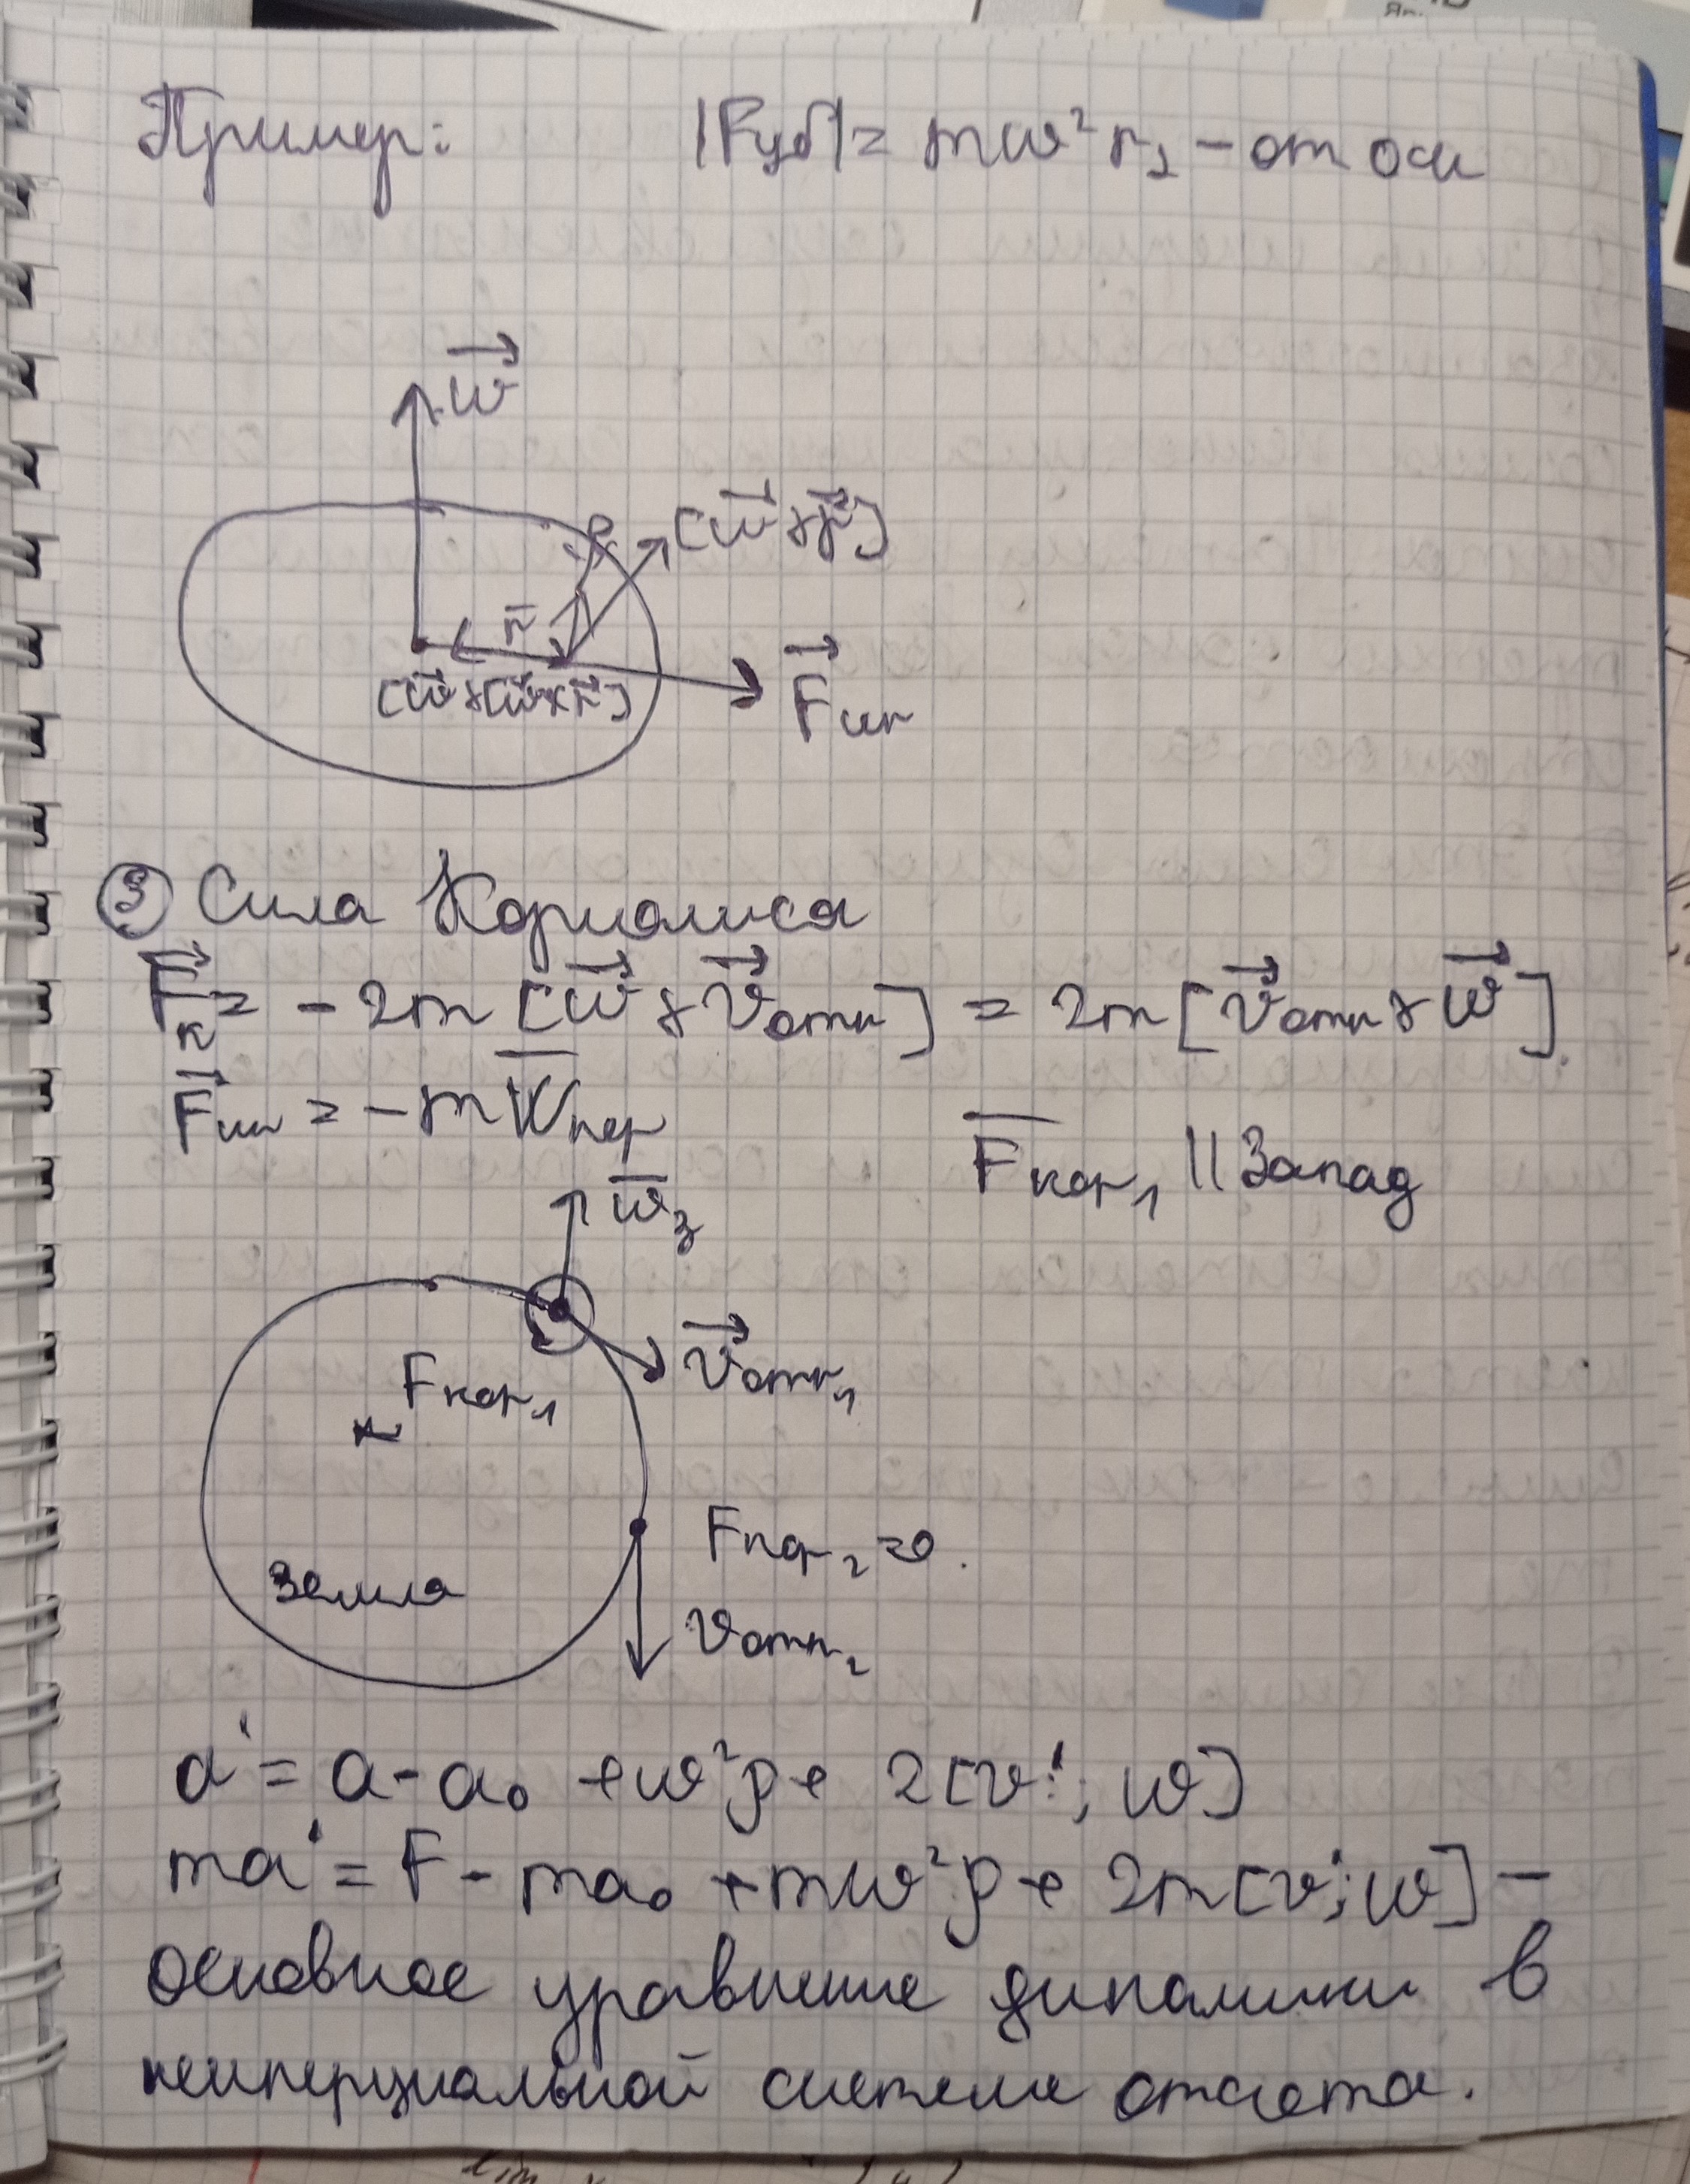 Пример: |Fуб| = mw²r, - от оси
w⃗
[w⃗ × r⃗]
r̄
[w⃗ × [w⃗ × r⃗]]
F⃗ин
③ Сила Кориолиса
F⃗к = - 2m [w⃗ × v⃗отн] = 2m [v⃗отн × w⃗]
F⃗ин = - m W̄пер
F̄кор₁ || Запад
w̄з
v⃗отн₁
Fкор₁
Fкор₂ = 0.
Земля
vотн₂
a' = a - a₀ + w²ρ + 2[v'; w]
ma' = F - ma₀ + mw²ρ + 2m[v'; w] -
основное уравнение динамики в
неинерциальной системе отсчета.